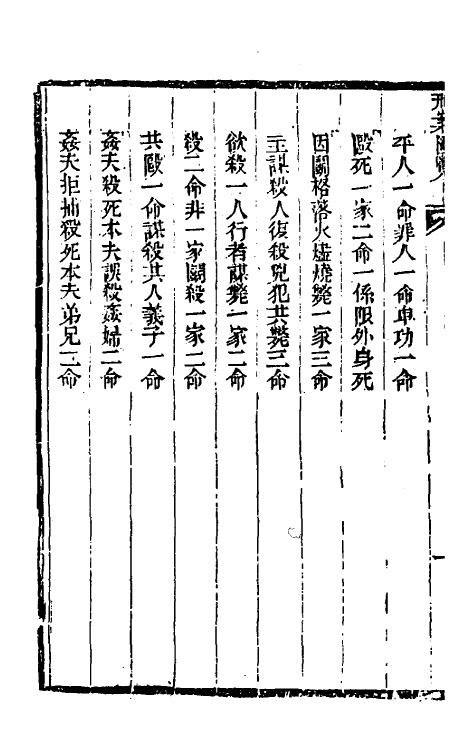 刑案匯覽
平人一命罪人一命卑功一命
毆死一家二命一係限外身死
因鬭格落火爐燒斃一家三命
主謀殺人復殺兇犯共斃三命
欲殺一人行者謀斃一家二命
殺二命非一家鬭殺一家二命
共毆一命謀殺其人義子一命
姦夫殺死本夫誤殺姦婦二命
姦夫拒捕殺死本夫弟兄二命